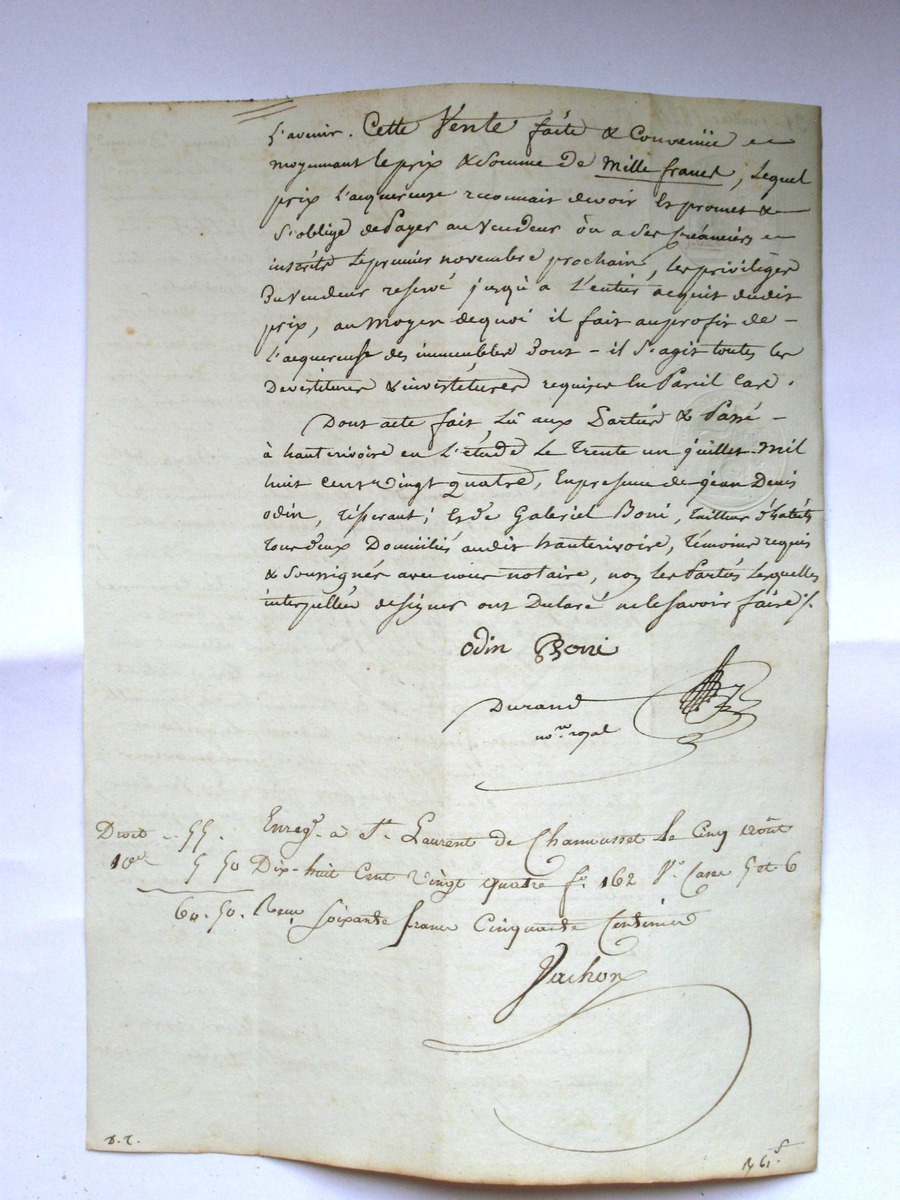 L'avenir. Cette Vente faite & Convenüe en
moyennant le prix & somme De Mille francs, Lequel
prix L'acquereuse reconnait devoir Et promet &
S'oblige de Payer au Vendeur ôu a ses Créanciers en
intérêts Le premier novembre prochain, les privilèges
Du Vendeur reservé jusqu'a L'entier acquit dudit
prix, au Moyen dequoi il fait au profit de -
L'acquereuse des immeubles Dont - il S'agit toutes les
Devestitures & investitures requises En Pareil Cas.
Dont acte fait, Lû aux Parties & Passé -
à hauterivoire en L'étude Le Trente un juillet Mil
huit Cent Vingt quatre, En presence de jean Denis
odin, Tisserant; Et de Gabriel Boni, Tailleur d'habits
Tous deux Domiciliés audit hauterivoire, Témoins requis
& Soussignés avec nous notaire, non les Parties Lesquelles
interpellées de signer ont Déclaré ne le Savoir faire ./.
Odin Boni
Durand
no.re royal
Droit .. 55. Enreg. à St. Laurent de Chamousset Le Cinq août
10e 5 50 Dix-huit Cent Vingt quatre fo. 162 Vo. Cases 5 et 6
60. 50. Reçu Soixante francs Cinquante Centimes
Vachon